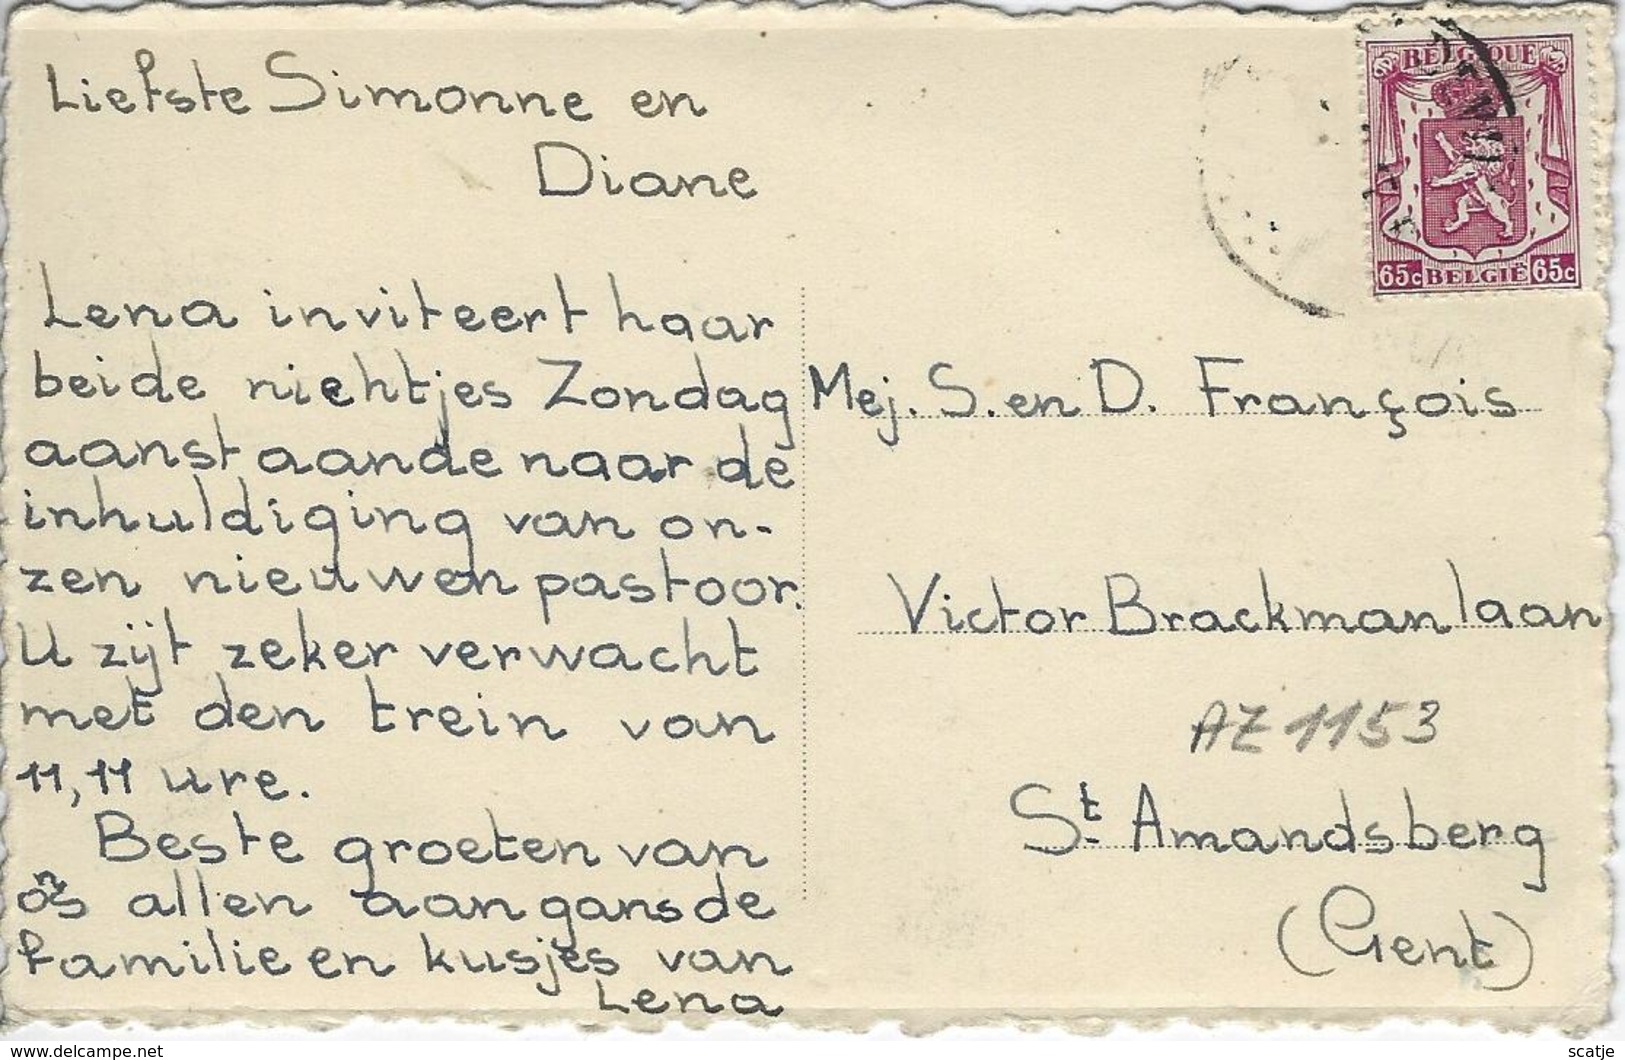 Liefste Simonne en
Diane
Lena inviteert haar
beide niehtjes Zondag
aanstaande naar de
inhuldiging van on-
zen nieuwen pastoor.
U zijt zeker verwacht
met den trein van
11,11 ure.
Beste groeten van
ons allen aan gansde
familie en kusjes van
Lena
BELGIQUE
65c BELGIË 65c
Mej. S. en D. François
Victor Brackmanlaan
AZ 1153
St. Amandsberg
(Gent)
www.delcampe.net
scatje